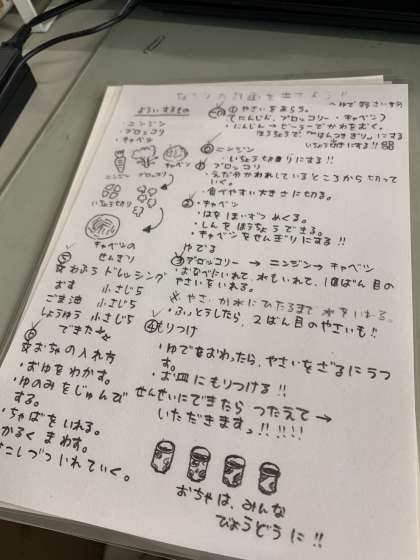 計画を立てよう!!
よういするもの
・ニンジン
・ブロッコリ
・キャベツ
ニンジン
ブロッコリ
キャベツ
いちょう切り
キャベツの
せんぎり
わふう ドレッシング
おす 小さじ5
ごま油 小さじ5
しょうゆう 小さじ5
できた
お茶の入れ方
・おゆをわかす。
・ゆのみをじゅんび
する。
・ちゃばをいれる。
かるく まわす。
ずついれていく。
①やさいをあらう。
(にんじん、ブロッコリー・キャベツ)
・にんじん→ピーラーでかわをむく。
いちょう切りにする!!
②ニンジン
・いちょう切りにする!!
ブロッコリ
・えだがわかれているところから切って
いく。
・食べやすい大きさに切る。
・キャベツ
・はを1まいずつ めくる。
・しんをほうちょうできる。
・キャベツをせんぎりにする!!
ゆでる
③ブロッコリー → ニンジン → キャベツ
・おなべにいれて、水もいれて、1ばん目の
やさいをいれる。
※やさいが水にひたるまで水をいれる。
・ふっとうしたら、2ばん目のやさいも!!
④もりつけ
・ゆでをおわったら、やさいをざるにうつ
す。
・お皿にもりつける!!
せんせいにできたら つたえて→
いただきますっ!!!!!
おちゃは、みんな
びょうどうに!!